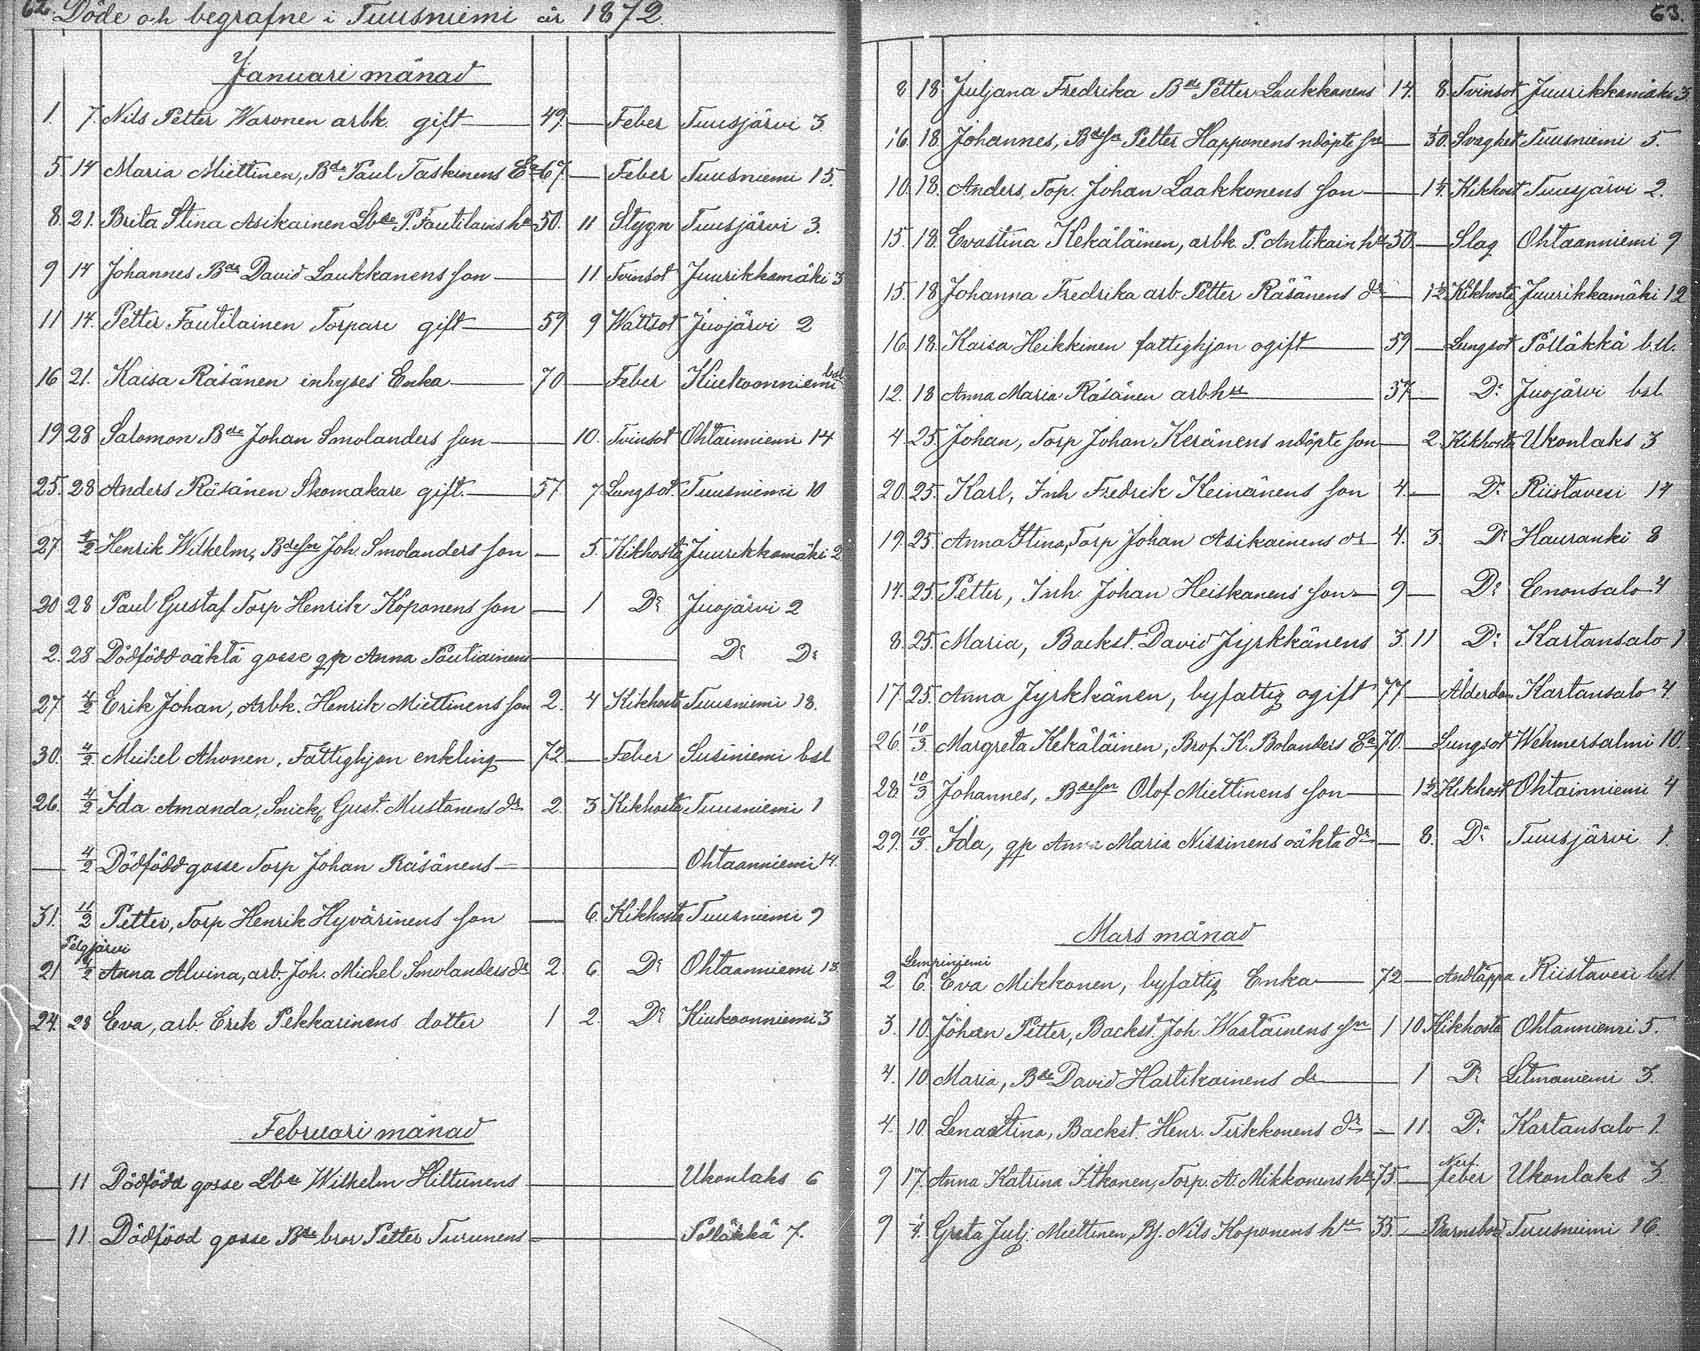 62. Döde och begrafne i Tuusniemi år 1872.
Januari månad
1. 7. Nils Petter Waronen arbk. gift 49 Feber Tuusjärvi 3.
5. 14 Maria Miettinen, Bde Paul Taskinens Ea 67 Feber Tuusniemi 15.
8. 21. Brita Stina Asikainen Lbde P. Fautilains hu 50. 11 Stygn Tuusjärvi 3.
9 14 Johannes Bde David Laukkanens son 11 Tvinsot Juurikkamäki 3
11 14. Petter Fautilainen Torpare gift 59 9 Wattsot Juojärvi 2
16 21. Kaisa Räsänen inhyses Enka 70 Feber Kiukoonniemi bsl
19 28 Salomon Bde Johan Smolanders son 10. Tvinsot Ohtaanniemi 14
25. 28 Anders Räsänen Skomakare gift. 57 7 Lungsot Tuusniemi 10
27 4/2 Henrik Wilhelm, Bdeson Joh. Smolanders son 5. Kikhosta Juurikkamäki 2
20 28 Paul Gustaf Torp Henrik Koponens son 1 Do Juojärvi 2
2. 28 Dödfödd oäkta gosse qp Anna Pautiainens Do Do
27. 4/2 Erik Johan, Arbk. Henrik Miettinens son 2. 4 Kikhosta Tuusniemi 18.
30. 4/2 Mickel Ahonen, Fattighjon enkling 72 Feber Susiniemi bsl
26. 4/2 Ida Amanda, Snick. Gust. Mustonens dr 2. 3 Kikhosta Tuusniemi 1
4/2 Dödfödd gosse Torp Johan Räsänens Ohtaanniemi 14.
31. 11/2 Petter, Torp Henrik Hyvärinens son 6. Kikhosta Tuusniemi 9
Pelgjärvi
21 Anna Alvina, arb. Joh. Michel Smolanders dr 2. 6. Do Ohtaanniemi 13.
24. 28 Eva, arb. Erik Pekkarinens dotter 1 2. Do Kiukoonniemi 3
Februari månad
11 Dödfödd gosse Lbde Wilhelm Hiltunens Ukonlaks 6
11. Dödfödd gosse Bde bror Petter Turunens Pölläkkä 7.
63.
8 18 Juljana Fredrika Bde Petter Laukkanens 14. 8. Tvinsot Juurikkamäki 3
16. 18. Johannes, Bdeson Petter Happonens nödöpte son 1/30. Svaghet Tuusniemi 5.
10. 18. Anders, Torp. Johan Laakkonens son Kikhost Tuusjärvi 2.
15. 18. Evastina Kekäläinen, arbk P. Antikain hu 50. Slag Ohtaanniemi 9
15. 18 Johanna Fredrika arb. Petter Räsänens dr 1 1/2 Kikhosta Juurikkamäki 12
16. 18. Kaisa Heikkinen fattighjon ogift 59 Lungsot Pölläkkä bsl.
12. 18 Anna Maria Räsänen arbhu 37 Do Juojärvi bsl
4 25. Johan, Torp Johan Keränens nödöpte son 2. Kikhosta Ukonlaks 3
20. 25. Karl, Inh Fredrik Keinänens son 4. Do Riistavesi 14
19. 25. Anna Stina, Torp Johan Asikainens dr 4. 3. Do Hauranki 8
14. 25. Petter, Inh Johan Heiskanens son 9 Do Enonsalo 4
8. 25. Maria, Backst. David Jyrkkänens 3. 11 Do Kartansalo 1.
17. 25. Anna Jyrkkänen, byfattig ogift 77 Ålderdom Kartansalo 4
26. 10/3. Margreta Kekäläinen, Brof. K. Bolanders Ea 70 Lungsot Wehmersalmi 10.
28. 10/3 Johannes, Bdeson Olof Miettinens son 1 1/2 Kikhost Ohtainniemi 4
29. 10/3. Ida, qp Anna Maria Nissinens oäkta dr 8. Do Tuusjärvi 1.
Mars månad
2 6. Eva Mikkonen, byfattig Enka 72 Andtäppa Riistavesi bsl
3. 10. Johan Petter, Backst. Joh. Wastainens son 1 10 Kikhosta Ohtanniemi 5.
4. 10 Maria, Bde David Hartikainens dr 1 Do Litmaniemi 3.
4. 10. Lena Stina, Backst. Henr. Tirkkonens dr 11. Do Kartansalo 1.
9 17. Anna Katrina Itkonen, Torp. A. Mikkonens hu 75. Nerf feber Ukonlaks 3.
9 1/4. Greta Julj. Miettinen, Bj. Nils Koponens hu 35 Barnsbörd Tuusniemi 16.